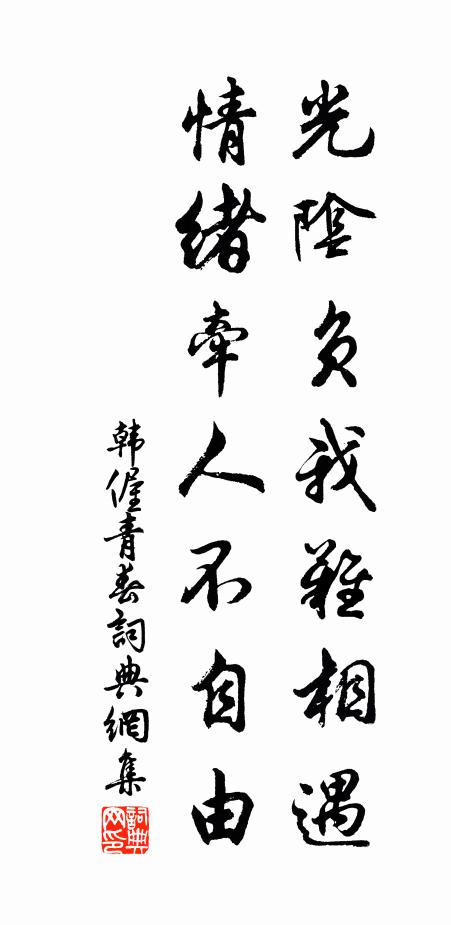 光陰負我難相遇
情緒牽人不自由
韩偓青春詞典網集
詞典网印